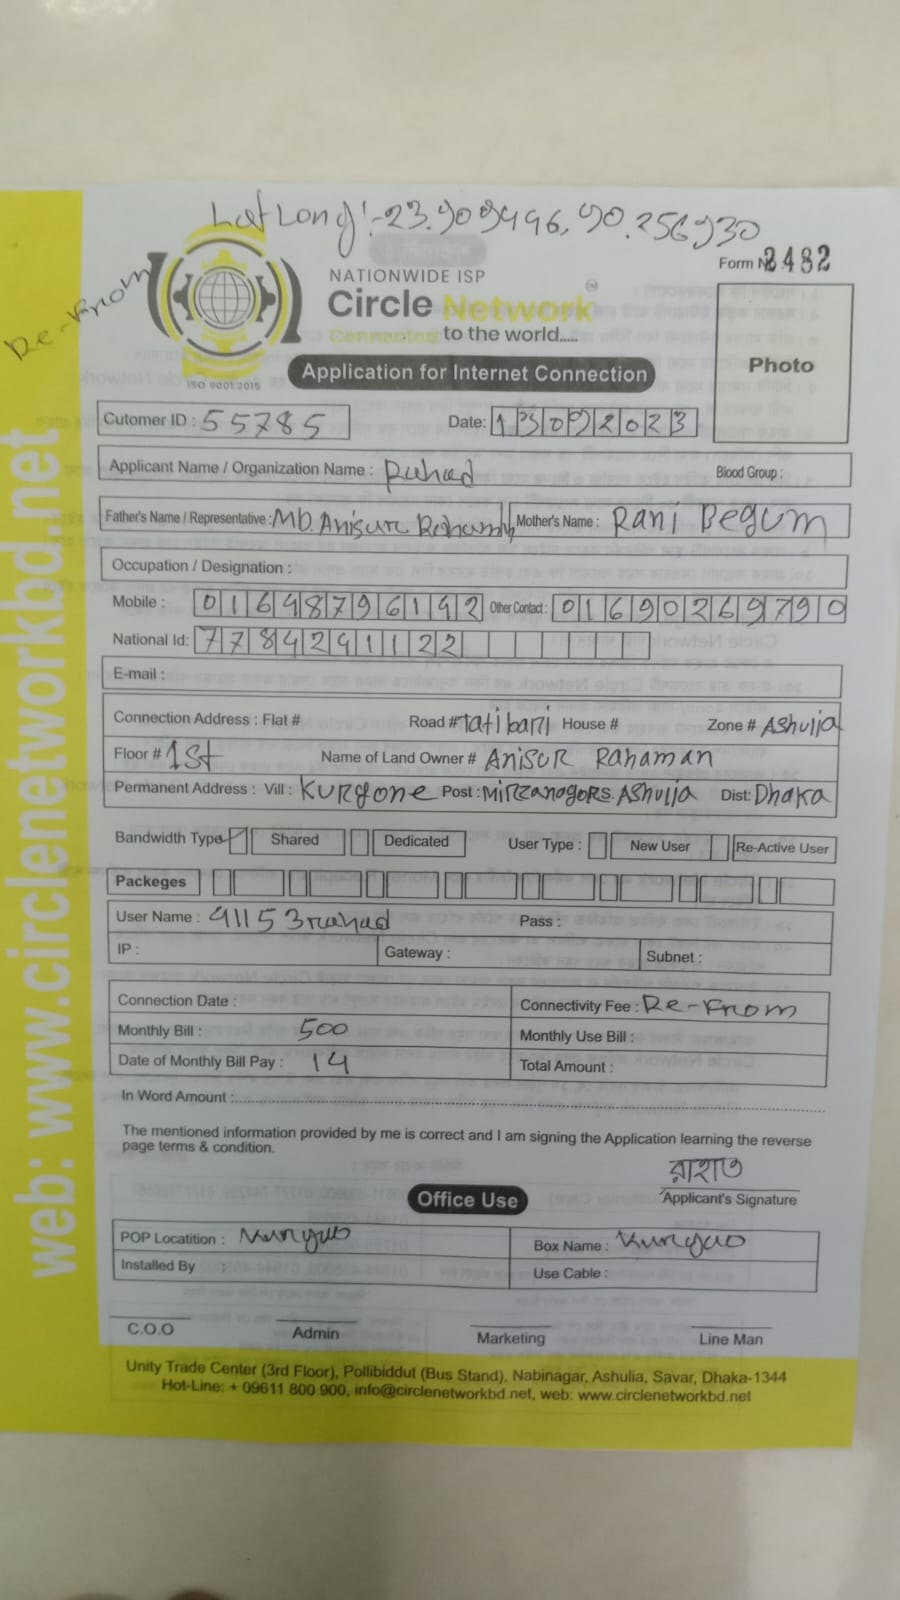 Lat Long:-23.909496, 90.256930
Re-From
Form No 3482
NATIONWIDE ISP
Circle Network
Connected to the world.....
ISO 9001:2015
Application for Internet Connection
Photo
Cutomer ID : 55785
Date: 13092023
Applicant Name / Organization Name : Rahad
Blood Group :
Father's Name / Representative : MD. Anisur Rahaman
Mother's Name : Rani Begum
Occupation / Designation :
Mobile : 01648796142 Other Contact : 01690269790
National Id: 7784241122
E-mail :
Connection Address : Flat # Road # Tatibari House # Zone # Ashulia
Floor # 1st Name of Land Owner # Anisur Rahaman
Permanent Address : Vill : Kurgone Post : Mirzanogor S. Ashulia Dist: Dhaka
Bandwidth Type Shared Dedicated User Type : New User Re-Active User
Packeges
User Name : 41153rahad Pass :
IP : Gateway : Subnet :
Connection Date : Connectivity Fee : Re-From
Monthly Bill : 500 Monthly Use Bill :
Date of Monthly Bill Pay : 14 Total Amount :
In Word Amount :
The mentioned information provided by me is correct and I am signing the Application learning the reverse
page terms & condition.
রাহাত
Applicant's Signature
Office Use
POP Locatition :
Box Name :
Installed By :
Use Cable :
C.O.O Admin Marketing Line Man
Unity Trade Center (3rd Floor), Pollibiddut (Bus Stand), Nabinagar, Ashulia, Savar, Dhaka-1344
Hot-Line: + 09611 800 900, info@circlenetworkbd.net, web: www.circlenetworkbd.net
web: www.circlenetworkbd.net